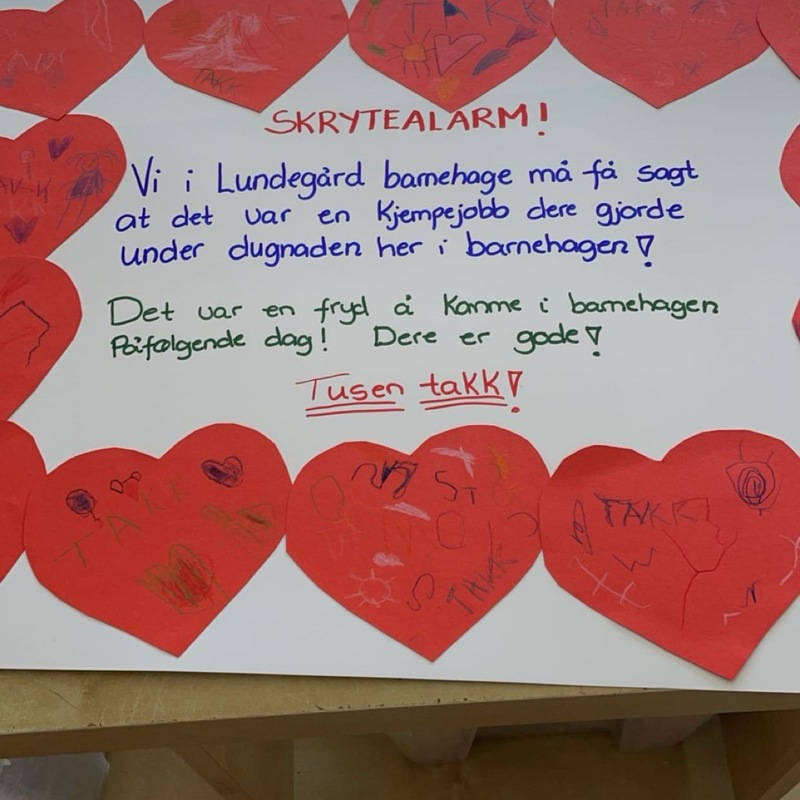 TAKK
TAKK
TAKK
SKRYTEALARM!
Vi i Lundegård barnehage må få sagt
at det var en Kjempejobb dere gjorde
under dugnaden her i barnehagen!
Det var en fryd å Komme i barnehagen
Påfølgende dag! Dere er gode!
Tusen takk!
TAKK
TAKK
TAKK